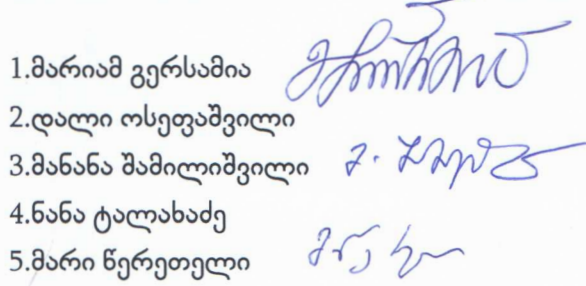 1.მარიამ გერსამია
2.დალი ოსეფაშვილი
3.მანანა შამილიშვილი
4.ნანა ტალახაძე
5.მარი წერეთელი